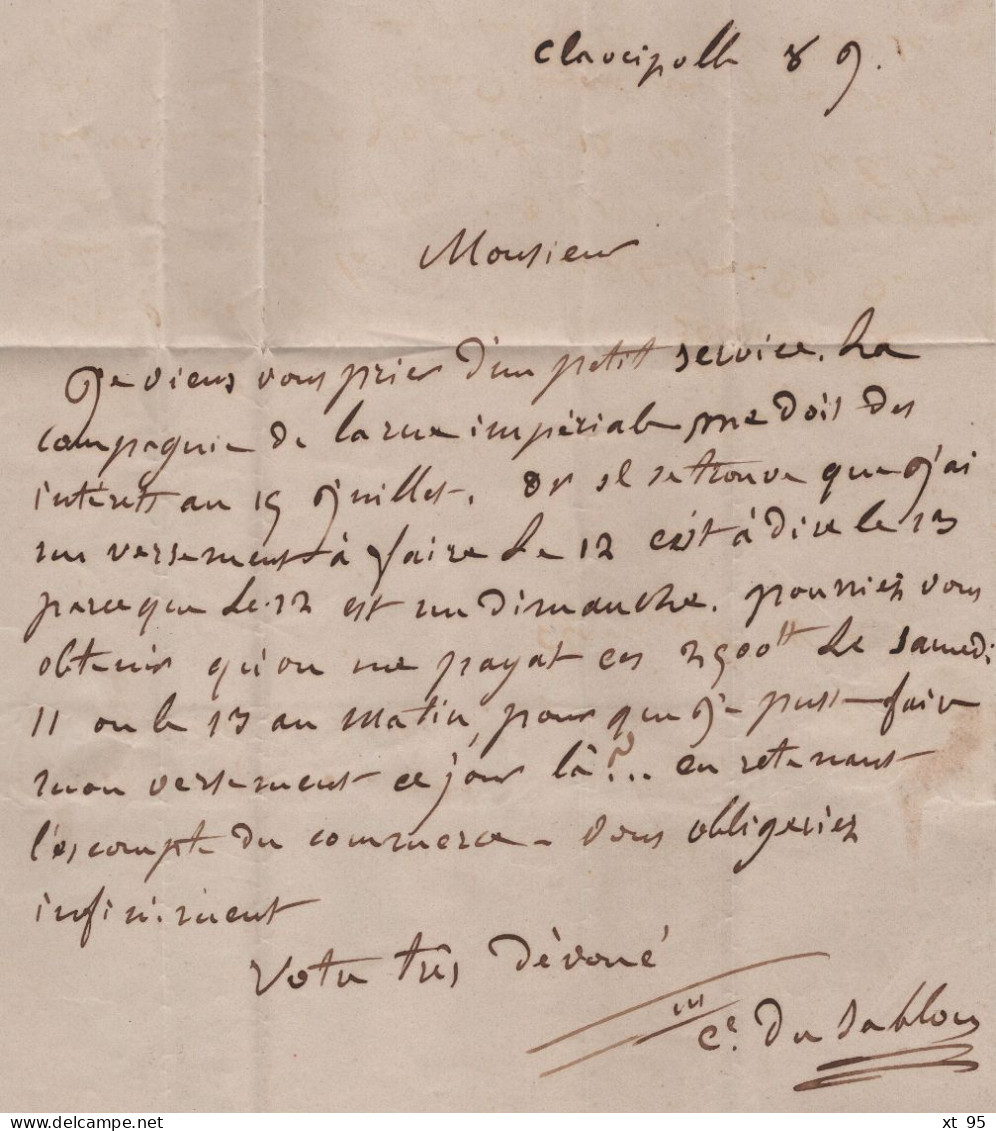 8 9.
Monsieur
Je viens vous prier d'un petit service. La
compagnie de la rue impériale me doit des
intérêts au 15 Juillet. Or il se trouve que j'ai
un versement à faire le 12 c'est à dire le 13
parceque le 12 est un dimanche. pourriez vous
obtenir qu'on me payat ces 2500 le samedi
11 ou le 13 au matin, pour que je puss faire
mon versement ce jour là?.. en retenant
l'escompte du commerce - vous obligeriez
infiniment
Votre très dévoué
Ce. Du Sablon
xt 95